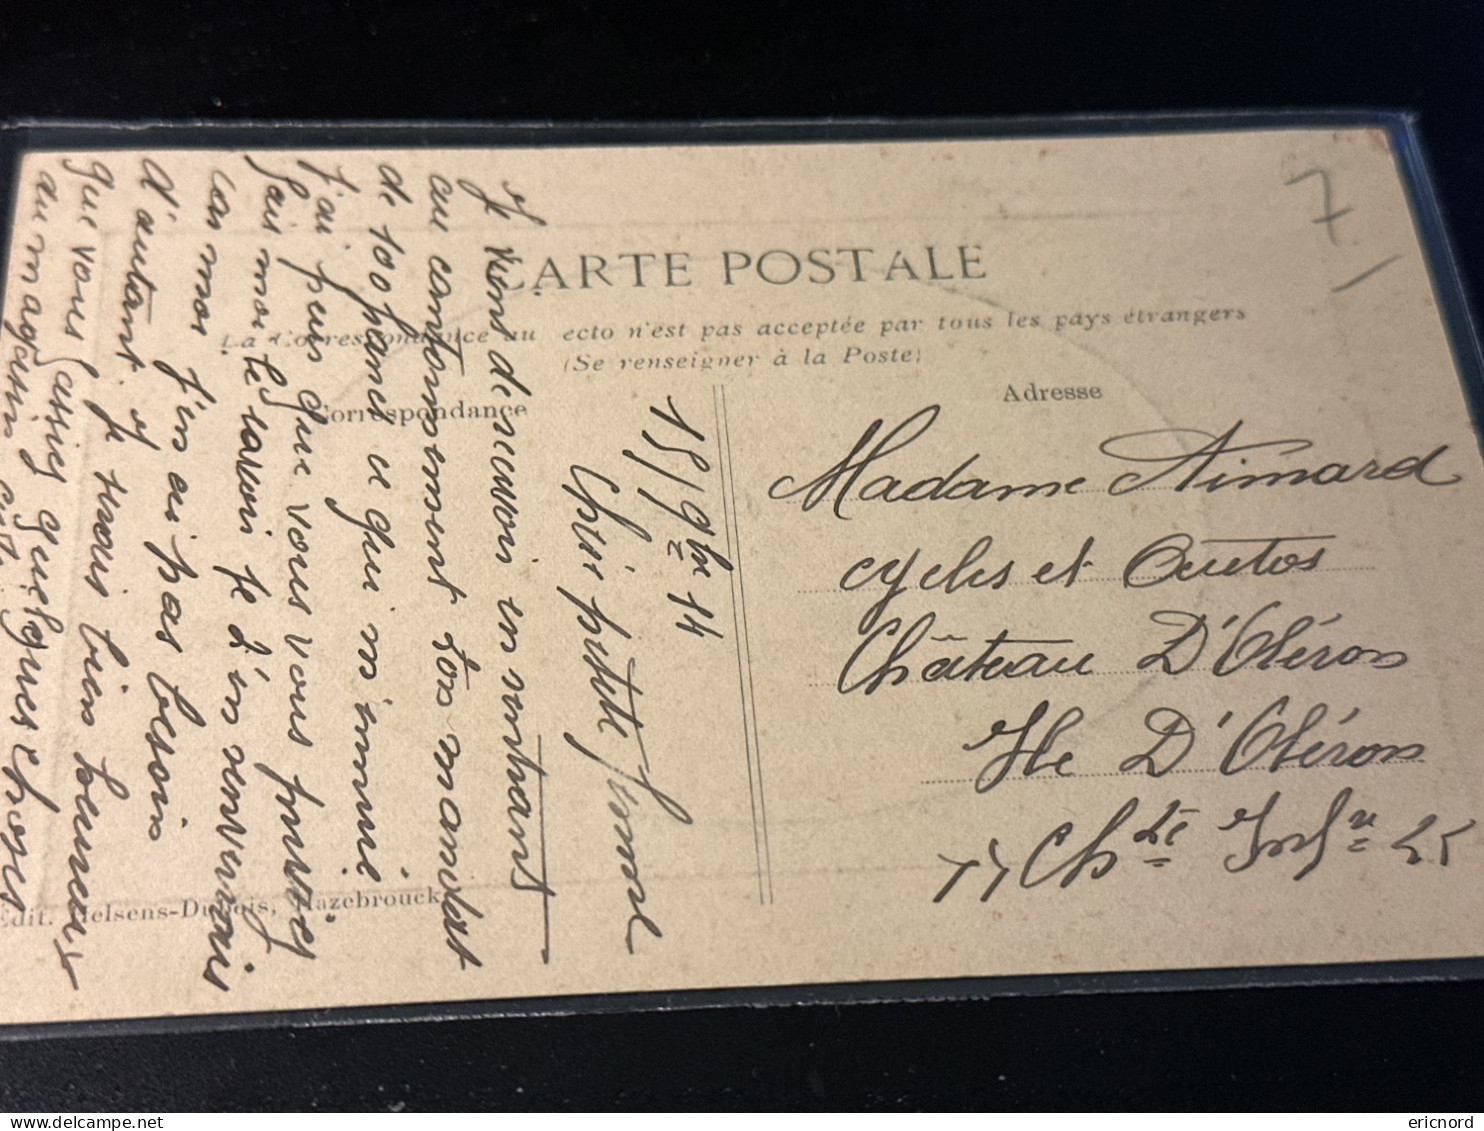 7
CARTE POSTALE
La Correspondance au ecto n'est pas acceptée par tous les pays étrangers
(Se renseigner à la Poste)
Correspondance
Adresse
Madame Aimard
cycles et Autos
Château D'Oléron
Ile D'Oléron
Ch te Inf re
15/9bre 14
Chère petite femme
Je viens de recevoir en rentrant
au cantonnement ton mandat
de 100 francs ce qui m'ennuie
j'ai peur que vous vous priviez
fais moi le savoir je t'en renverrais
car moi j'en ai pas besoin
d'autant. Je serais bien heureux
que vous fassiez quelques choses
au magasin
Edit. Nelsens-Dubois, Hazebrouck
ericnord